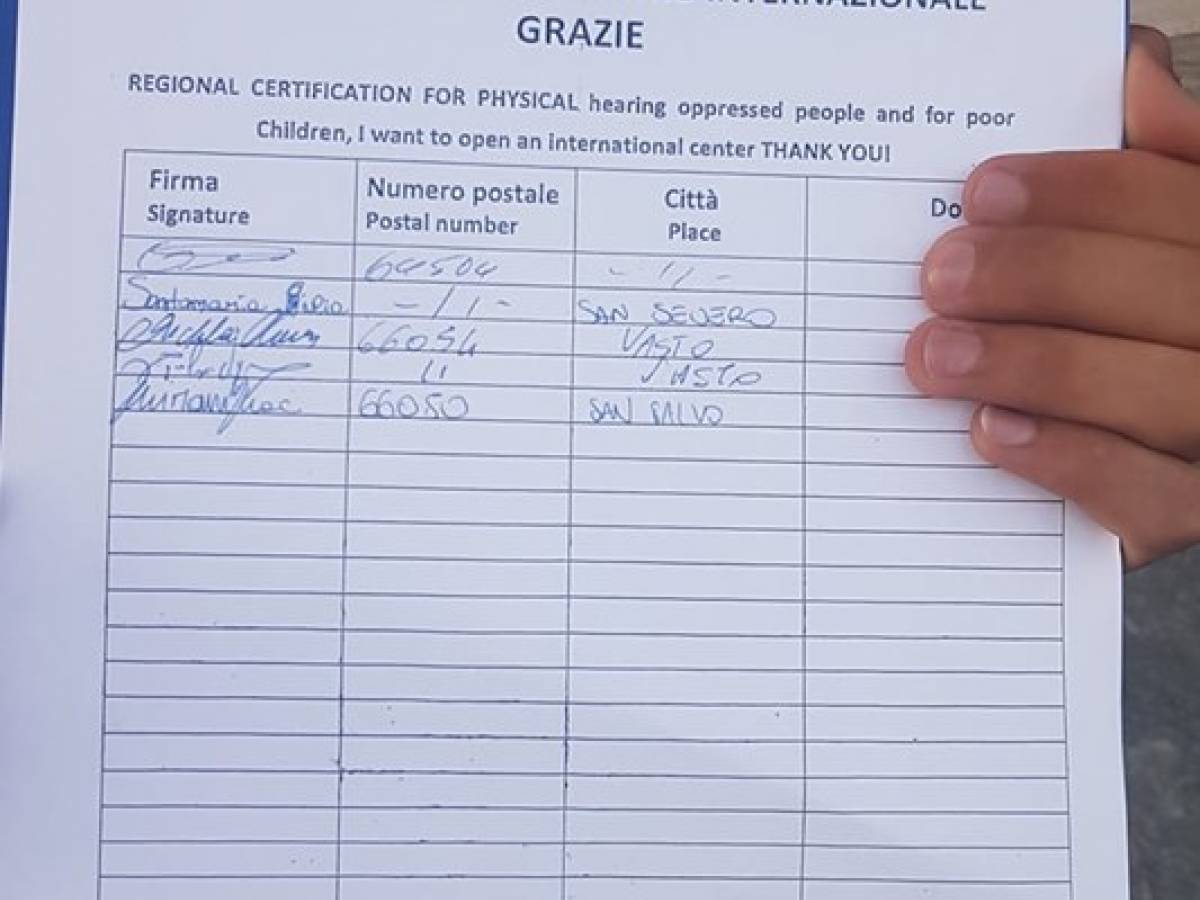 INTERNAZIONALE
GRAZIE
REGIONAL CERTIFICATION FOR PHYSICAL hearing oppressed people and for poor
Children, I want to open an international center THANK YOU!
Firma Numero postale Città Do
Signature Postal number Place
64504 - 11 -
Santamaria - / 1 - SAN SEVERO
66054 VASTO
11 VASTO
66050 SAN SALVO